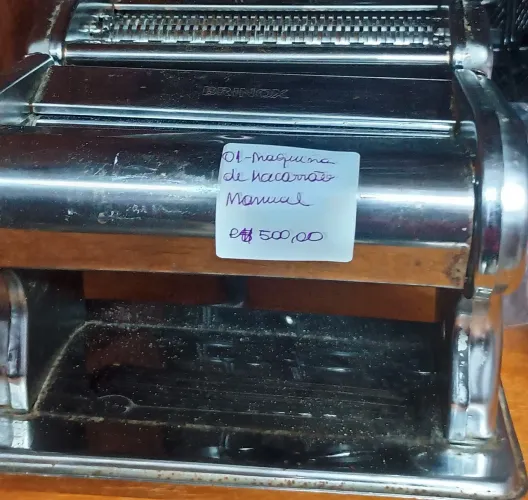 BRINOX
01-Maquina
de Macarrão
Manual
R$ 500,00